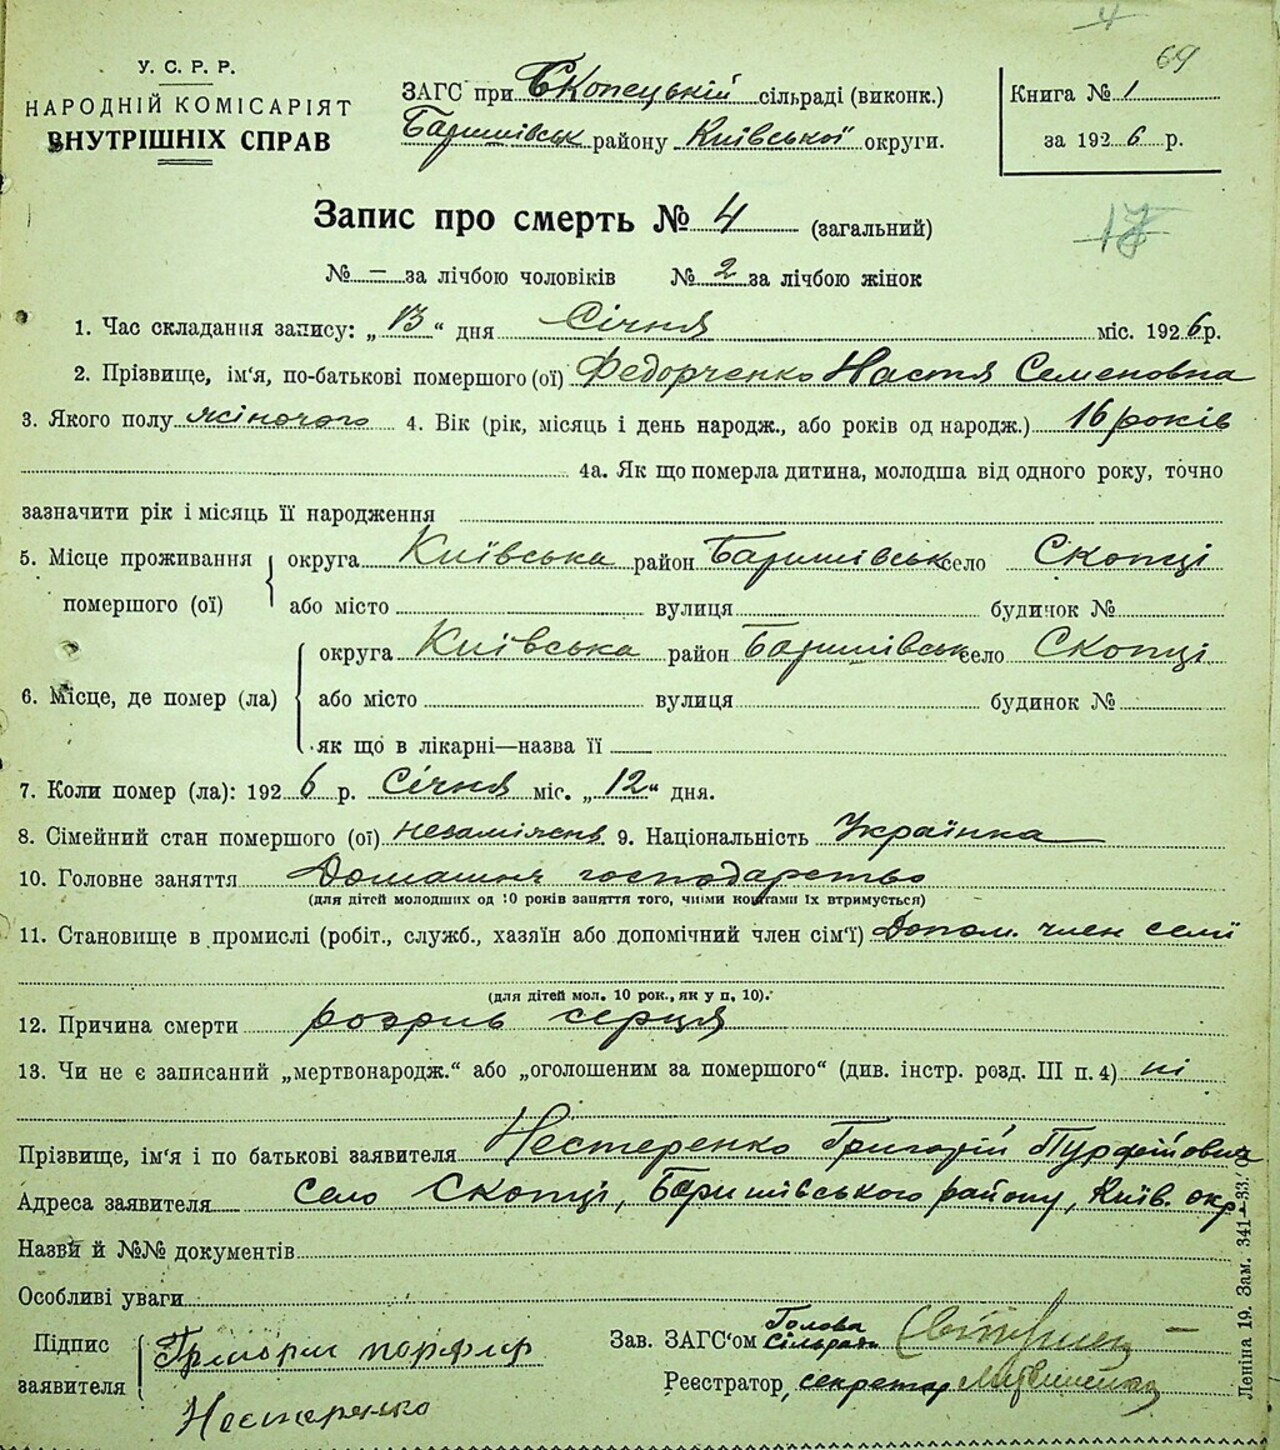 4
69
У. С. Р. Р.
НАРОДНІЙ КОМІСАРІЯТ
ВНУТРІШНІХ СПРАВ
ЗАГС при Скопецькій сільраді (виконк.)
Баришівськ району Київської округи.
Книга № 1
за 1926 р.
Запис про смерть № 4 (загальний)
17
№ – за лічбою чоловіків № 2 за лічбою жінок
1. Час складання запису: „13“ дня Січня міс. 1926 р.
2. Прізвище, ім'я, по-батькові помершого (ої) Федорченко Настя Семеновна
3. Якого полу жіночого 4. Вік (рік, місяць і день народж., або років од народж.) 16 років
4а. Як що померла дитина, молодша від одного року, точно
зазначити рік і місяць її народження
5. Місце проживання помершого (ої) округа Київська район Баришівськ село Скопці
або місто вулиця будинок №
6. Місце, де помер (ла) округа Київська район Баришівськ село Скопці
або місто вулиця будинок №
як що в лікарні—назва її
7. Коли помер (ла): 1926 р. Січня міс. „12“ дня.
8. Сімейний стан помершого (ої) незаміжня 9. Національність Українка
10. Головне заняття Домашня господарство
(для дітей молодших од 10 років заняття того, чиїми коштами їх втримується)
11. Становище в промислі (робіт., служб., хазяїн або допомічний член сім'ї) Допом. член семї
(для дітей мол. 10 рок., як у п. 10).
12. Причина смерти розрив серця
13. Чи не є записаний „мертвонародж.“ або „оголошеним за помершого“ (див. інстр. розд. III п. 4) ні
Прізвище, ім'я і по батькові заявителя Нестеренко Григорій Пурфійович
Адреса заявителя село Скопці, Баришівського району, Київ. окр
Назви й №№ документів
Особливі уваги
Підпис заявителя Григорій порфир
Нестеренко
Зав. ЗАГС'ом Голова Сільради
Реєстратор, секретар
Леніна 19. Зам. 341—33.